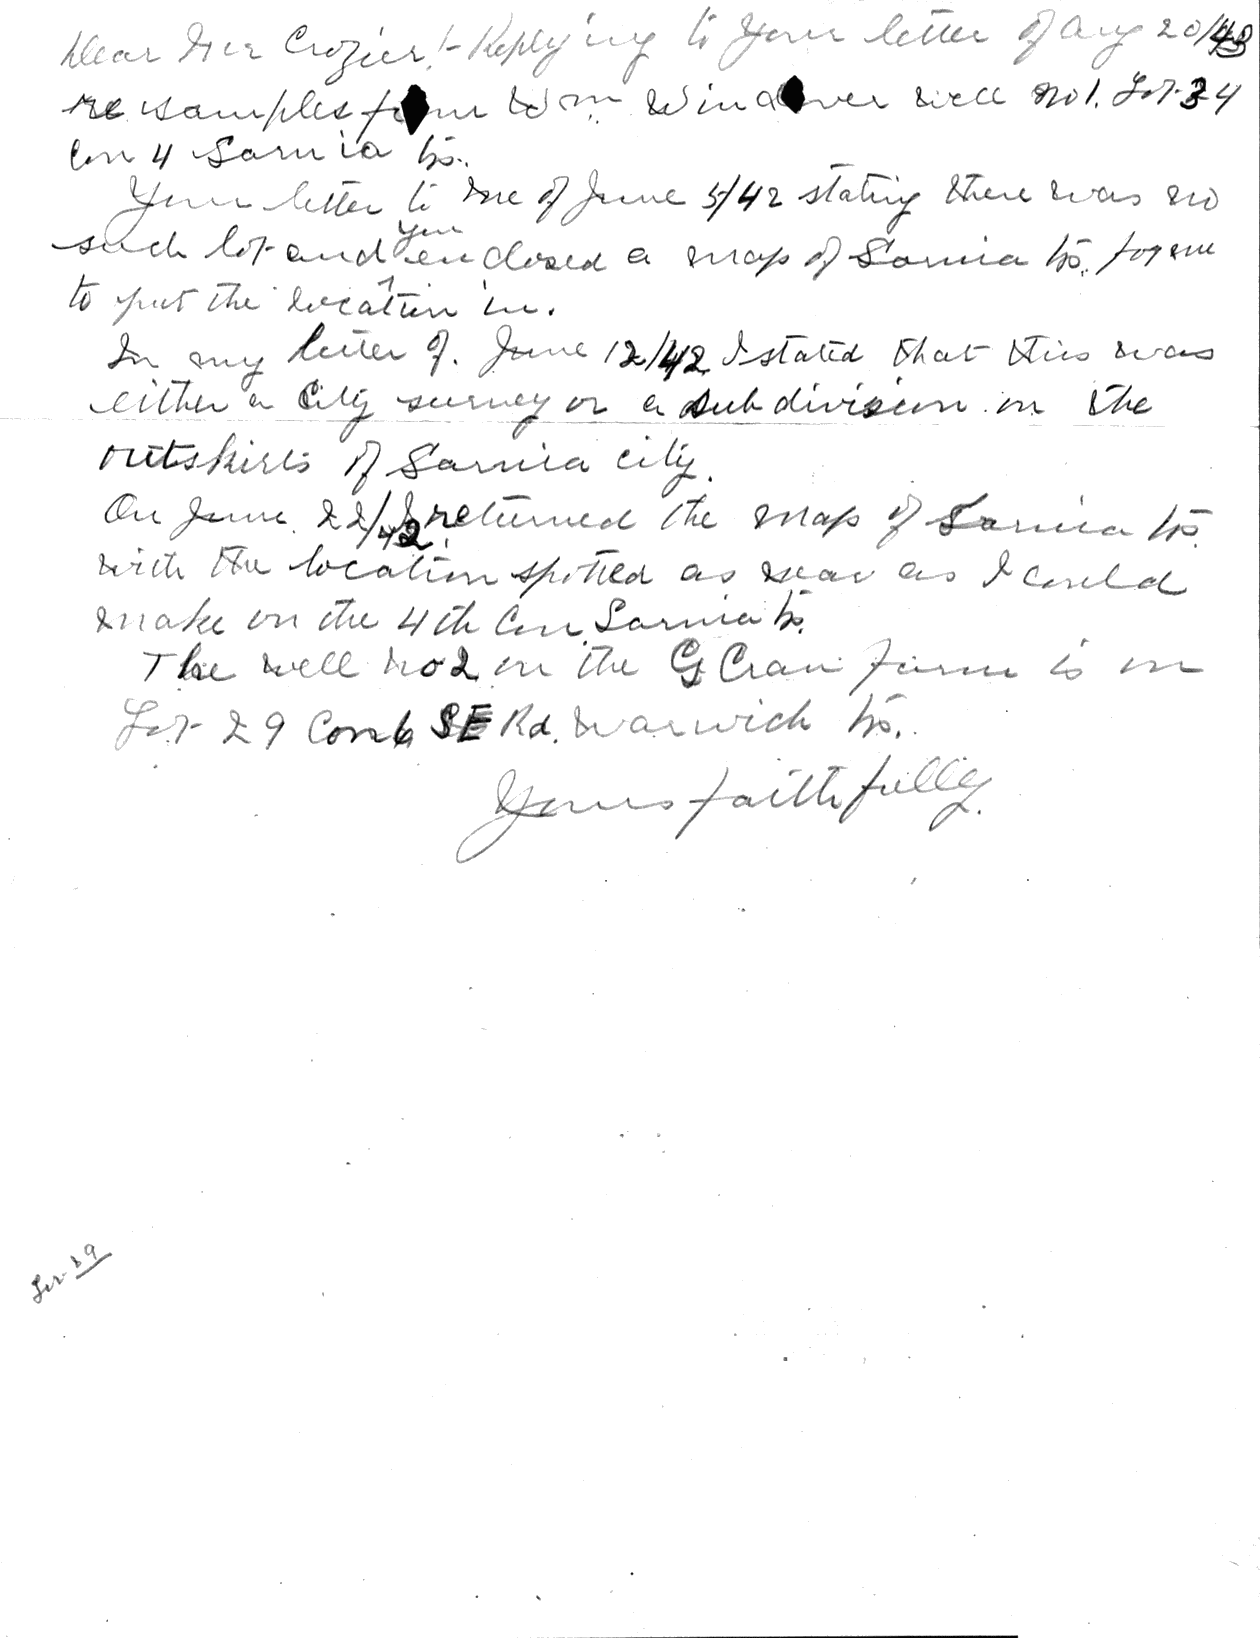 Dear Mr Crozier!- Replying to your letter of Aug 20/43
re samples from Wm. Windover well No 1. Lot 34
Con 4 Sarnia Ts.
Your letter to me of June 5/42 stating there was no
such lot and you enclosed a map of Sarnia Ts. for me
to put the location in.
In my letter of. June 12/42 I stated that this was
either a City survey or a subdivision on the
outskirts of Sarnia city.
On June 22/42 I returned the map of Sarnia Ts.
with the location spotted as near as I could
make on the 4th Con. Sarnia Ts.
The well No 2 on the G Cran farm is on
Lot 29 Con 6 SE Rd. Warwick Ts.
Yours faithfully.
Lot 29